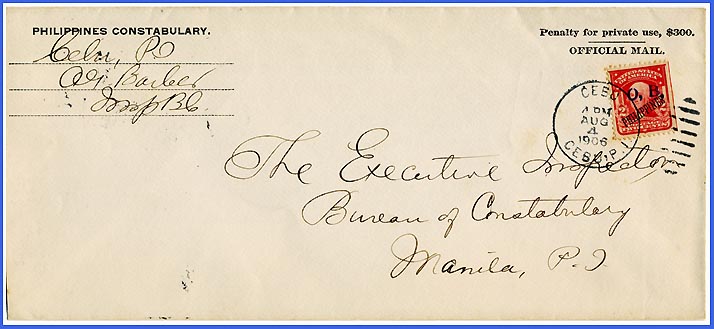 PHILIPPINES CONSTABULARY.
Cebu, P.I.
Barber
Penalty for private use, $300.
OFFICIAL MAIL.
O. B.
PHILIPPINES
CEBU
4 PM
AUG
4
1906
CEBU, P.I.
The Executive Inspector
Bureau of Constabulary
Manila, P.I.